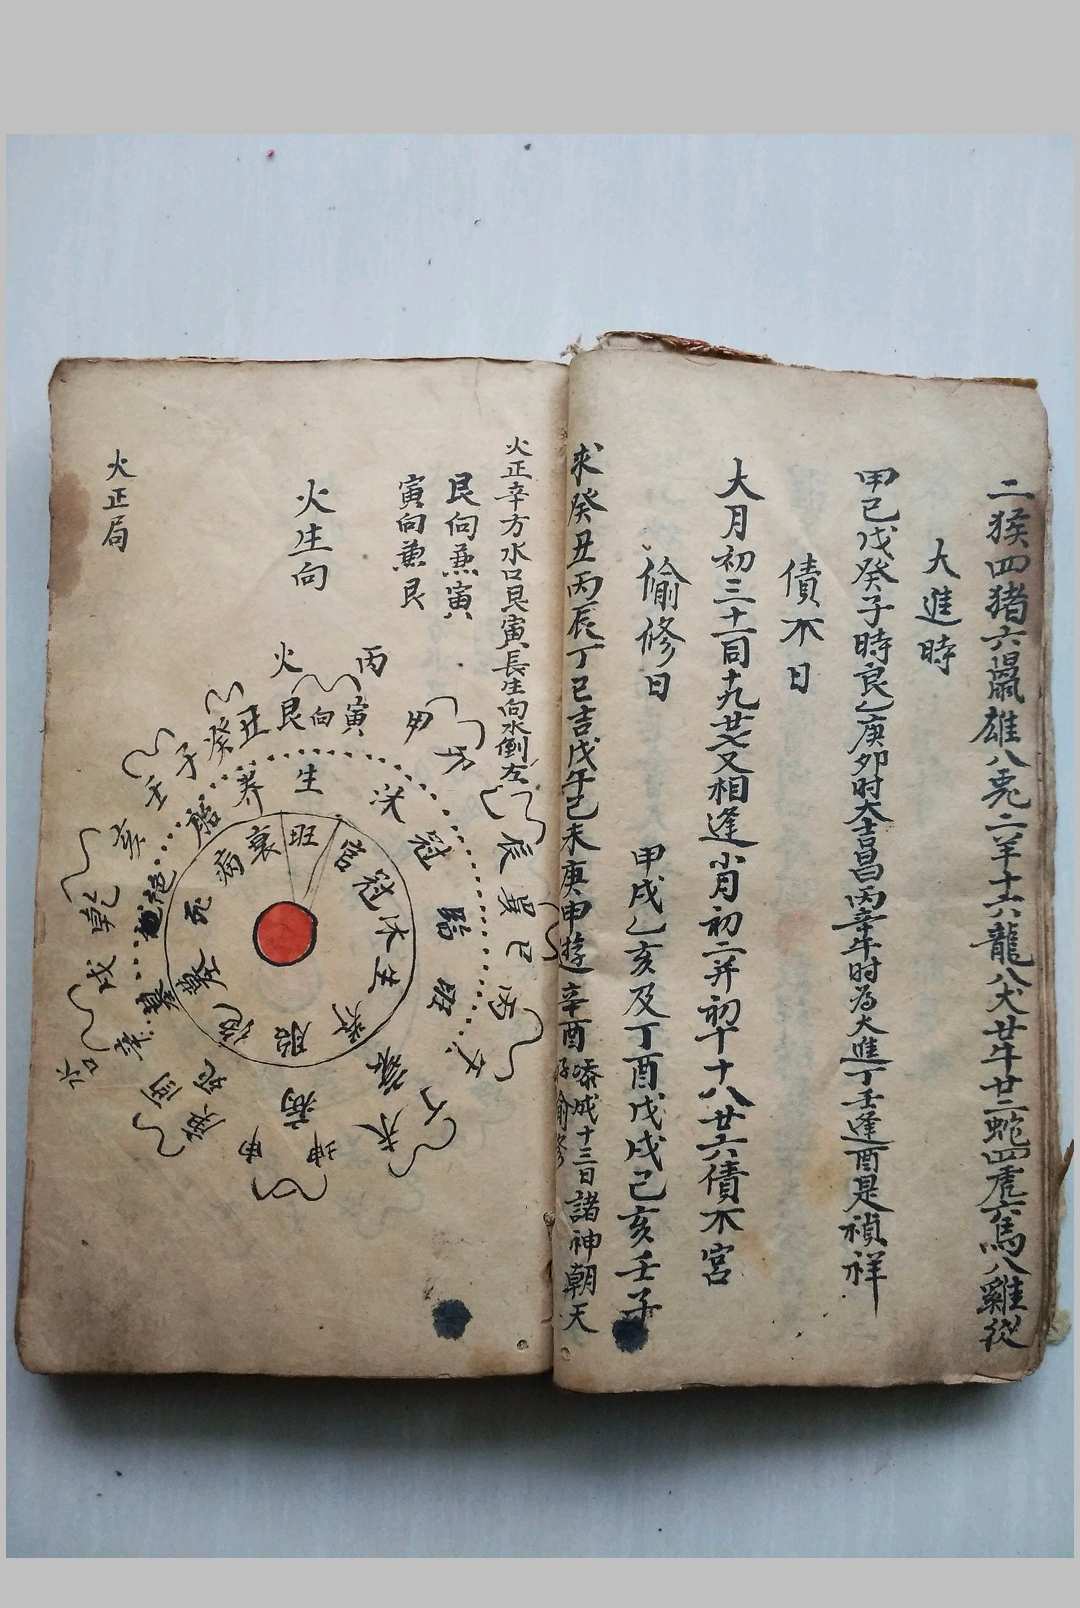 二猴四猪六鼠雄八兎二羊十六龍八犬廿牛廿二蛇四虎六馬八雞從
大進時
甲己戊癸子時良乙庚卯时大吉昌丙辛午时为大進丁壬逢酉是禎祥
債不日
大月初三十一同十九廿七又相逢小月初二并初十十八廿六債不宮
偷修日
甲戌乙亥及丁酉戊戌己亥壬子
求癸丑丙辰丁巳吉戊午己未庚申遊辛酉添成十三日諸神朝天
好偷修
火正辛方水口艮寅長生向水倒左
艮向兼寅
寅向兼艮
火生向
火正局
火
丙
丑艮向寅甲
壬子癸
辰巽巳丙丁
乾戌
未坤申
养生沐冠臨旺
胎
病死墓
旺官冠沐生养胎絕墓死病衰